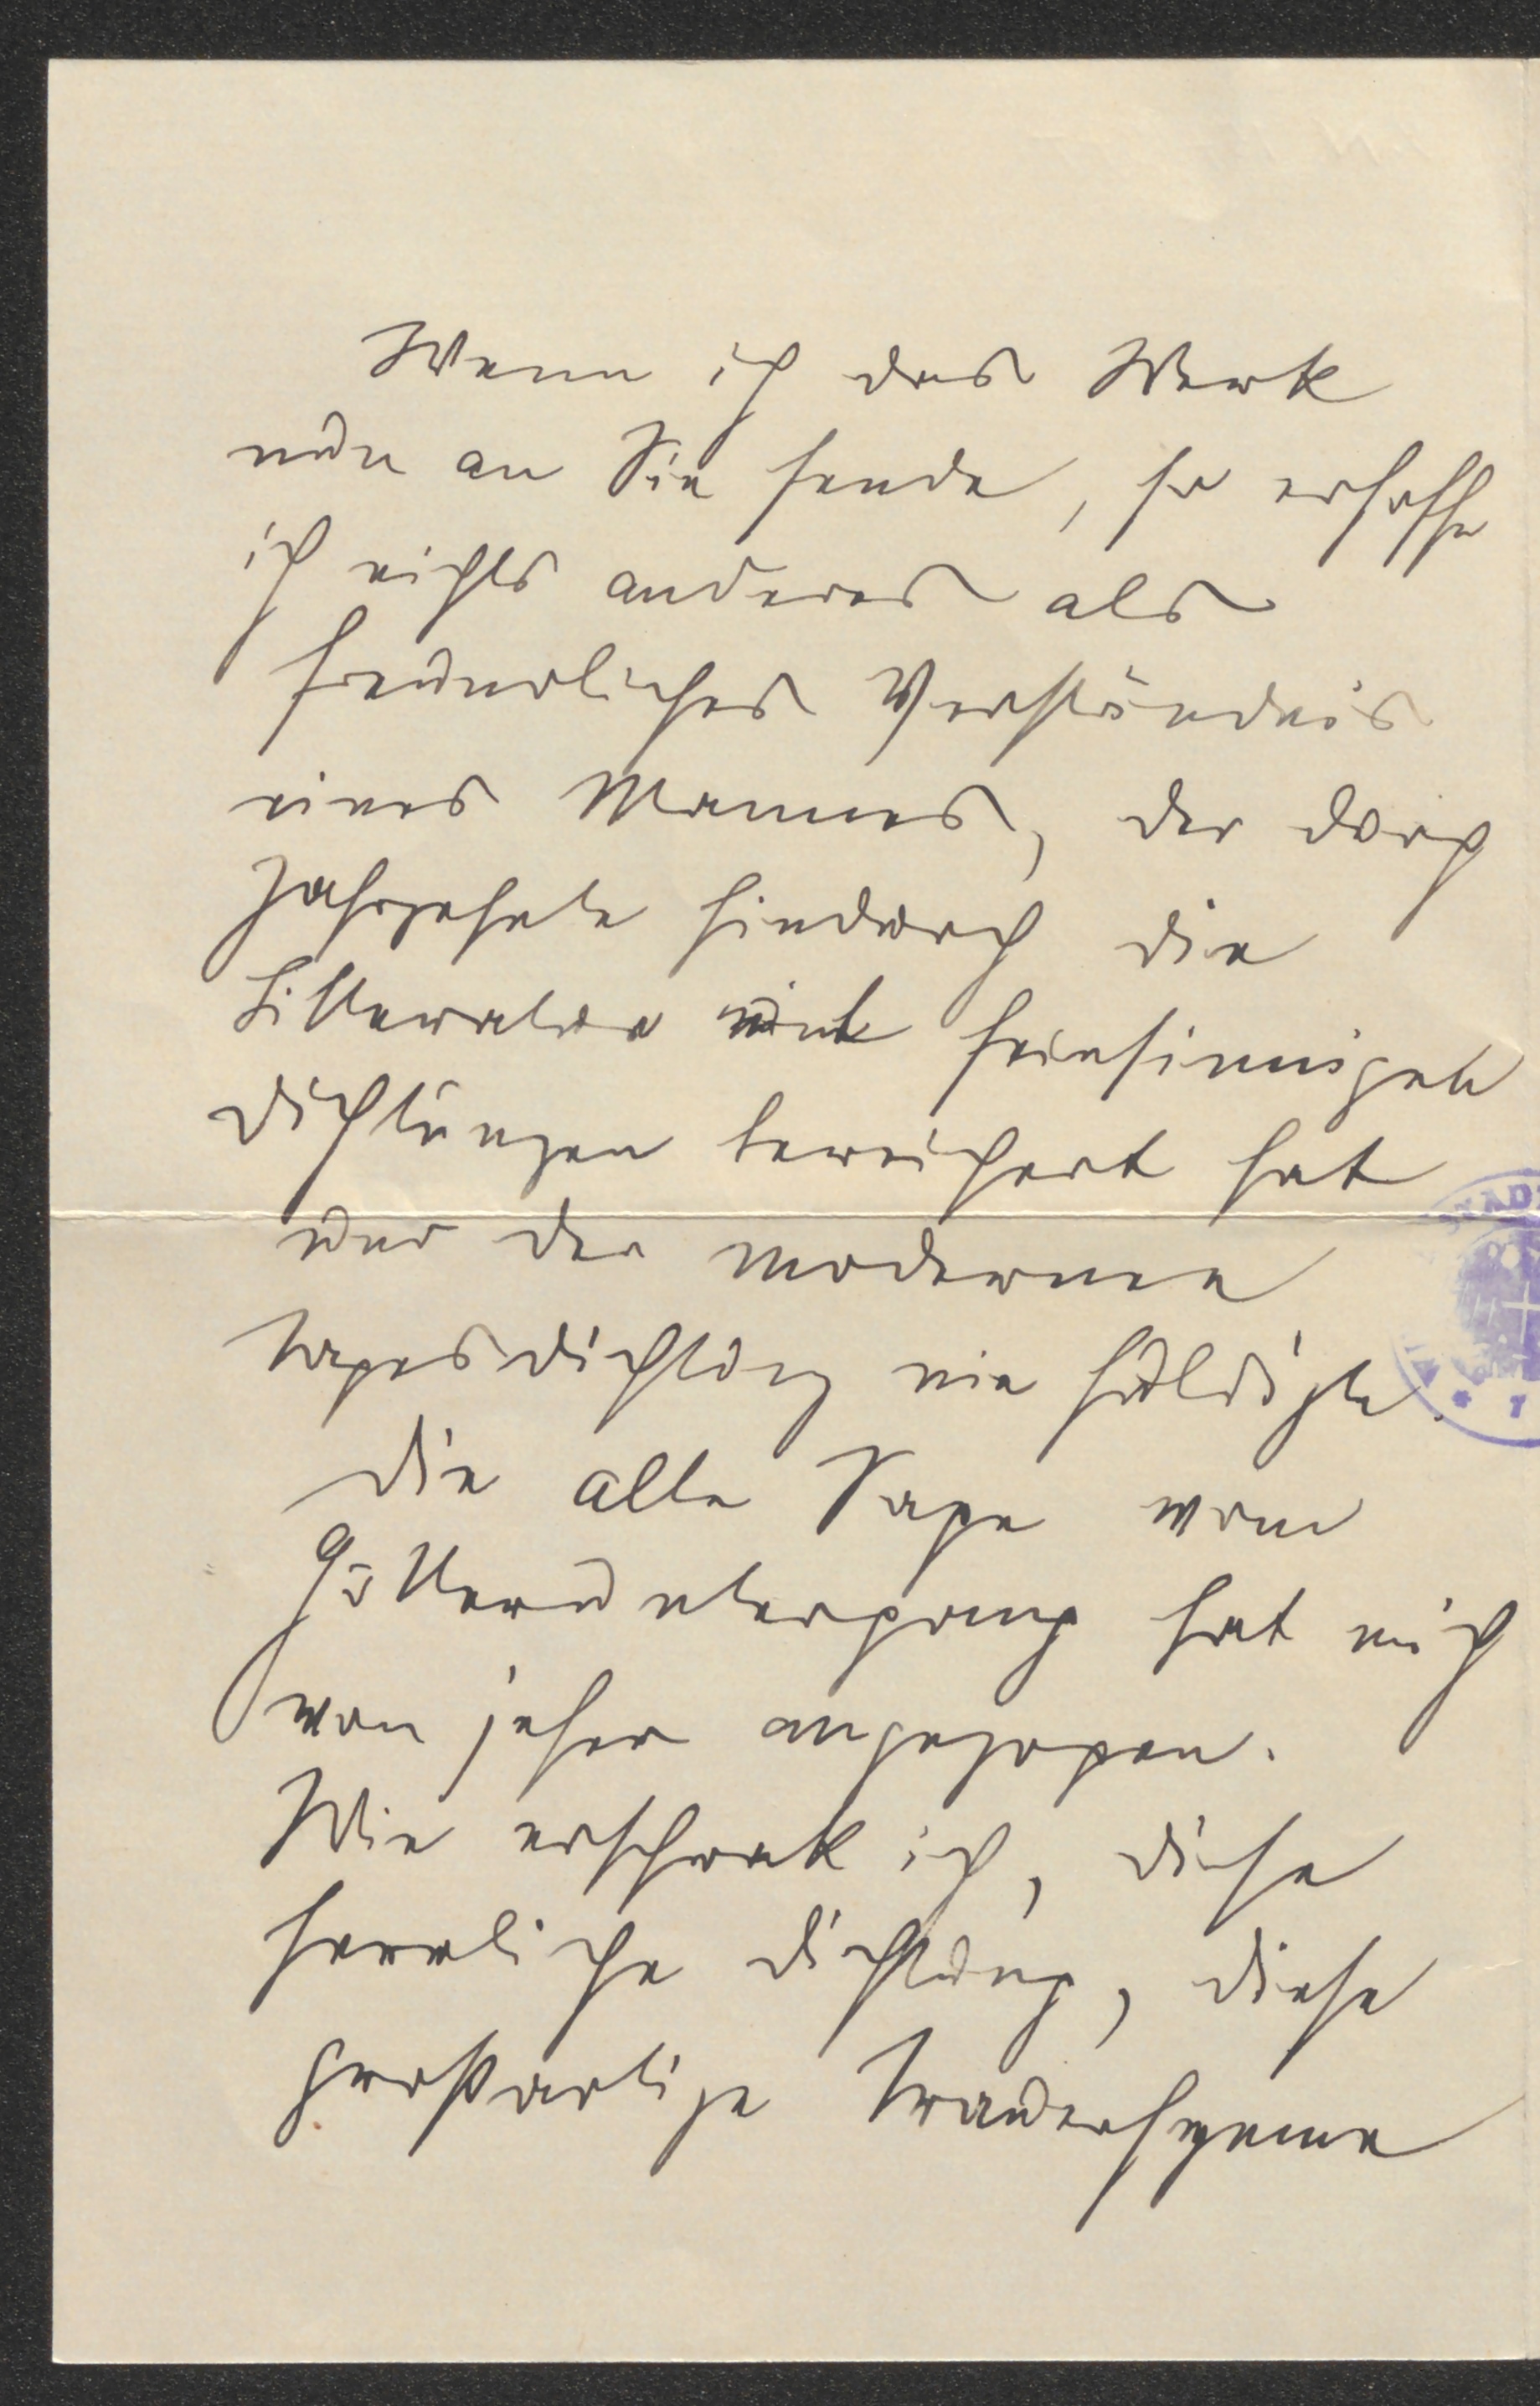 Wenn ich das Werk
nun an Sie sende, so erhoffe
ich nichts anderes als
freundliches Verständnis
eines Mannes, der durch
Jahrzehnte hindurch die
Litteratur mit feinsinnigen
Dichtungen bereichert hat
und der modernen
Tagesdichtung nie huldigte.
Die alte Sage vom
Götteruntergang hat mich
von jeher angezogen.
Wie erschrak ich, diese
herrliche Dichtung, diese
großartige Trauerhymne
STAD